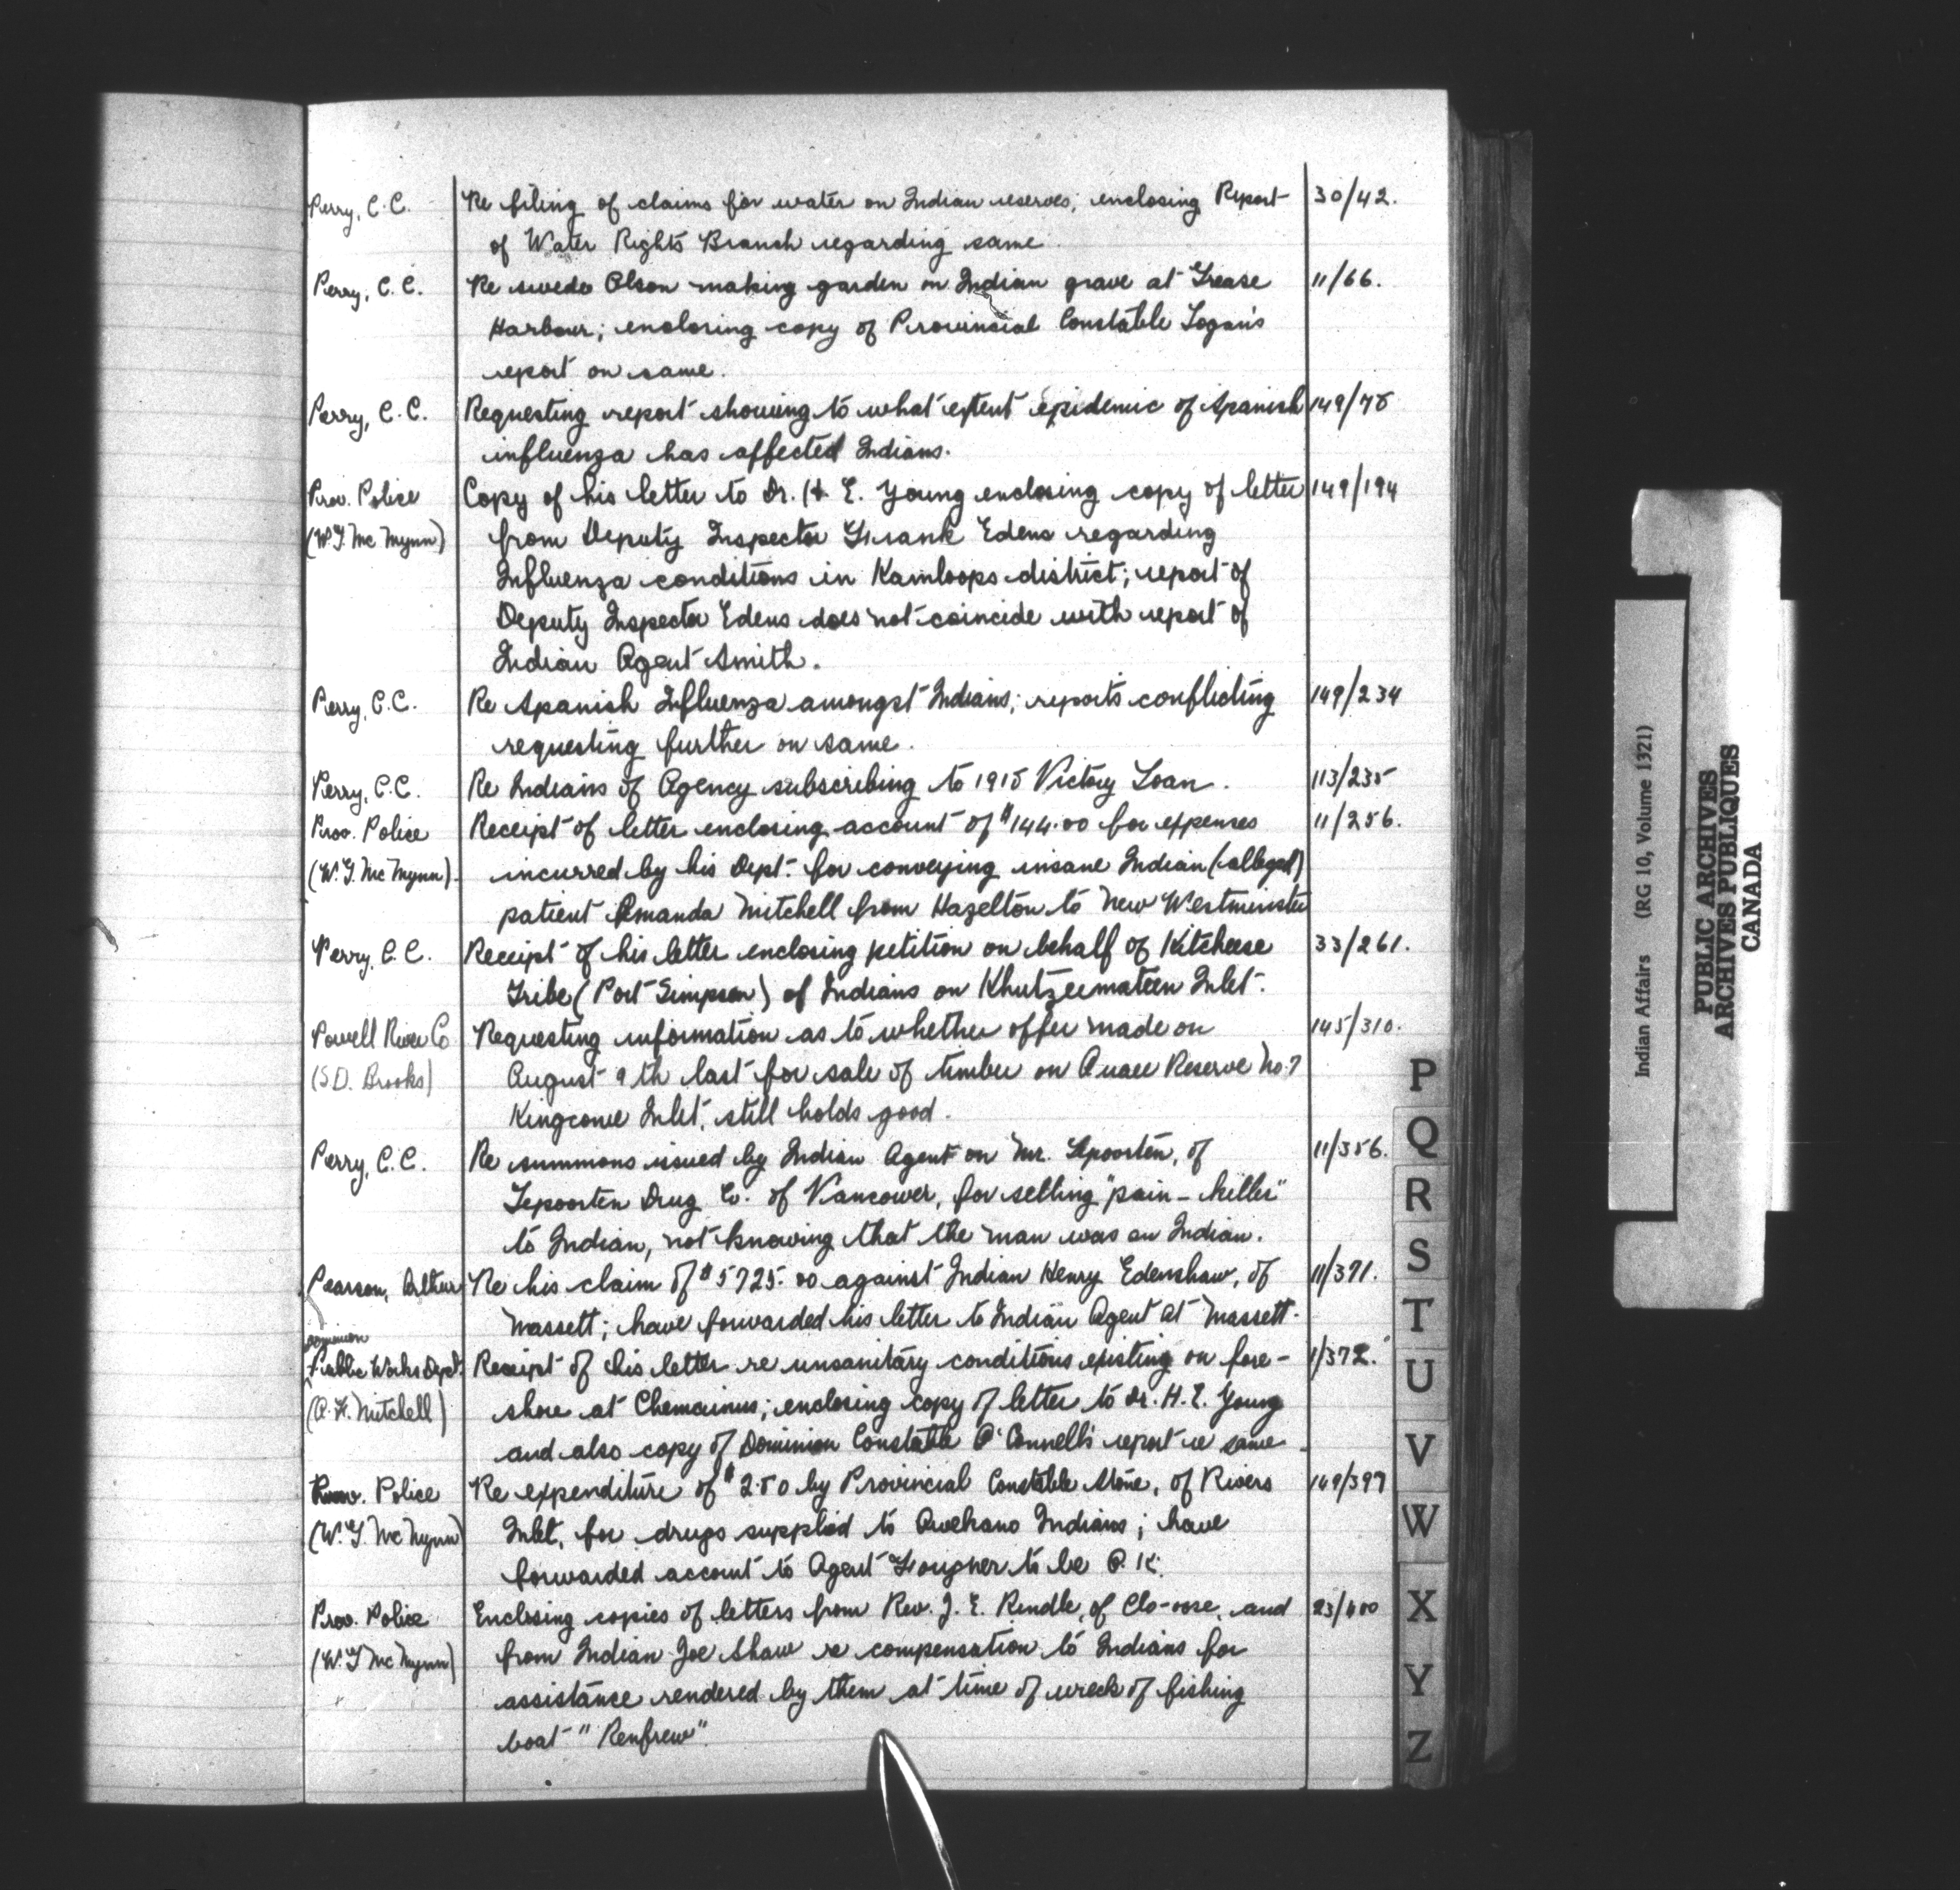 Perry, C.C. Re filing of claims for water on Indian reserves; enclosing Report 30/42.
of Water Rights Branch regarding same.
Perry, C.C. Re swede Olson making garden on Indian grave at Grease 11/66.
Harbour; enclosing copy of Provincial Constable Logan's
report on same.
Perry, C.C. Requesting report showing to what extent epidemic of Spanish 149/78
influenza has affected Indians.
Prov. Police Copy of his letter to Dr. H. E. Young enclosing copy of letter 149/194
(W.G. Mc Mynn) from Deputy Inspector Frank Edens regarding
Influenza conditions in Kamloops district; report of
Deputy Inspector Edens does not coincide with report of
Indian Agent Smith.
Perry, C.C. Re Spanish Influenza amongst Indians; reports conflicting 149/234
requesting further on same.
Perry, C.C. Re Indians of Agency subscribing to 1918 Victory Loan. 113/235
Prov. Police Receipt of letter enclosing account of $144.00 for expenses 11/256.
(W.G. Mc Mynn). incurred by his Dept. for conveying insane Indian (alleged)
patient Amanda Mitchell from Hazelton to New Westminster
Perry, C.C. Receipt of his letter enclosing petition on behalf of Kitcheese 33/261.
Tribe (Port Simpson) of Indians on Khutzeemateen Inlet.
Powell River Co Requesting information as to whether offer made on 145/310.
(S.D. Brooks) August 9th last for sale of timber on Quaee Reserve No. 7
Kingcome Inlet, still holds good.
Perry, C.C. Re summons issued by Indian Agent on Mr. of 11/356.
Tepoorten Drug Co. of Vancouver, for selling "pain-killer"
to Indian, not knowing that the man was an Indian.
Pearson, Arthur Re his claim of $5725.00 against Indian Henry Edenshaw, of 11/371.
Massett; have forwarded his letter to Indian Agent at Massett.
Dominion
Public Works Dept. Receipt of his letter re unsanitary conditions existing on fore- 1/372.
(A.F. Mitchell) shore at Chemainus; enclosing copy of letter to Dr. H.E. Young
and also copy of Dominion Constable O'Connell's report re same.
Prov. Police Re expenditure of $2.50 by Provincial Constable Stone, of Rivers 149/397
(W.G. Mc Mynn) Inlet, for drugs supplied to Indians; have
forwarded account to Agent Fougner to be O.K.
Prov. Police Enclosing copies of letters from Rev. J. E. Rendle, of Clo-oose, and 23/400
(W.G Mc Mynn) from Indian Joe Shaw re compensation to Indians for
assistance rendered by them at time of wreck of fishing
boat "Renfrew".
P
Q
R
S
T
U
V
W
X
Y
Z
Indian Affairs (RG 10, Volume 1321)
PUBLIC ARCHIVES
ARCHIVES PUBLIQUES
CANADA